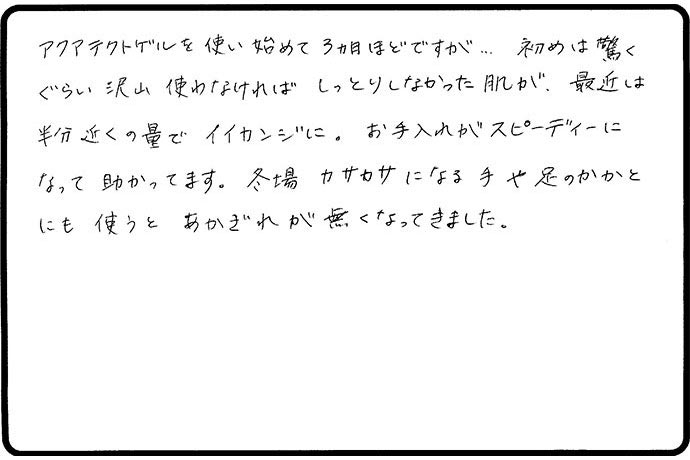 アクアテクトゲルを使い始めて3ヵ月ほどですが… 初めは驚く
ぐらい沢山使わなければしっとりしなかった肌が、最近は
半分近くの量でイイカンジに。お手入れがスピーディーに
なって助かってます。冬場カサカサになる手や足のかかと
にも使うとあかぎれが無くなってきました。